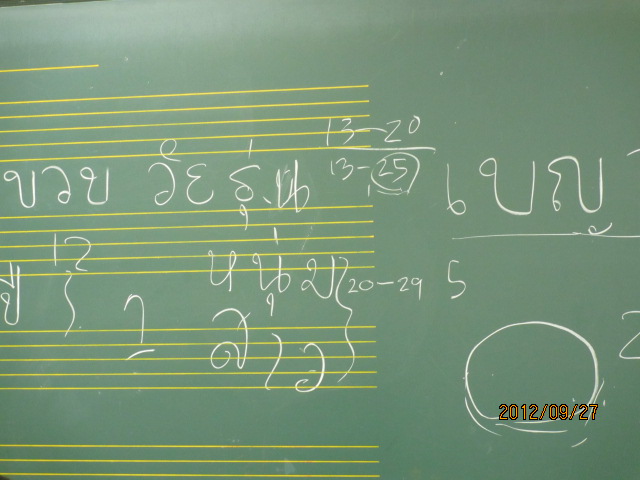 13-20
ขวบ วัยรุ่น 13-25 เบญ
12 หนุ่ม 20-29 5
สาว
2012/09/27